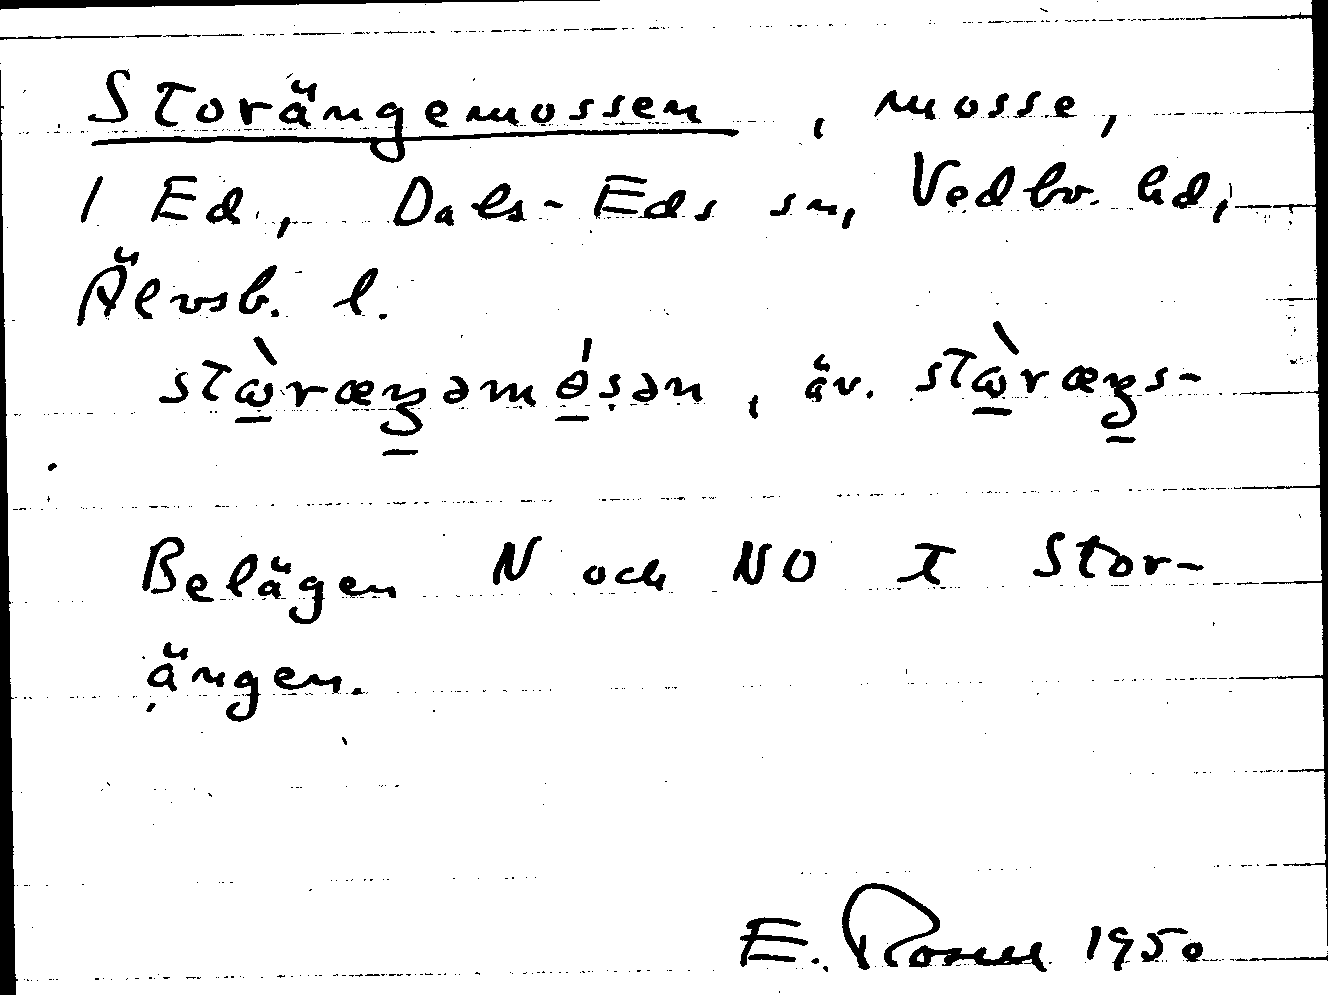 Storängemossen, mosse,
1 Ed, Dals-Eds sn, Vedbo. hd,
Älvsb. l.
stὼræŋəmɵ́sən, äv. stὼræŋs-
Belägen N och NO I Stor-
ängen.
E. 1950